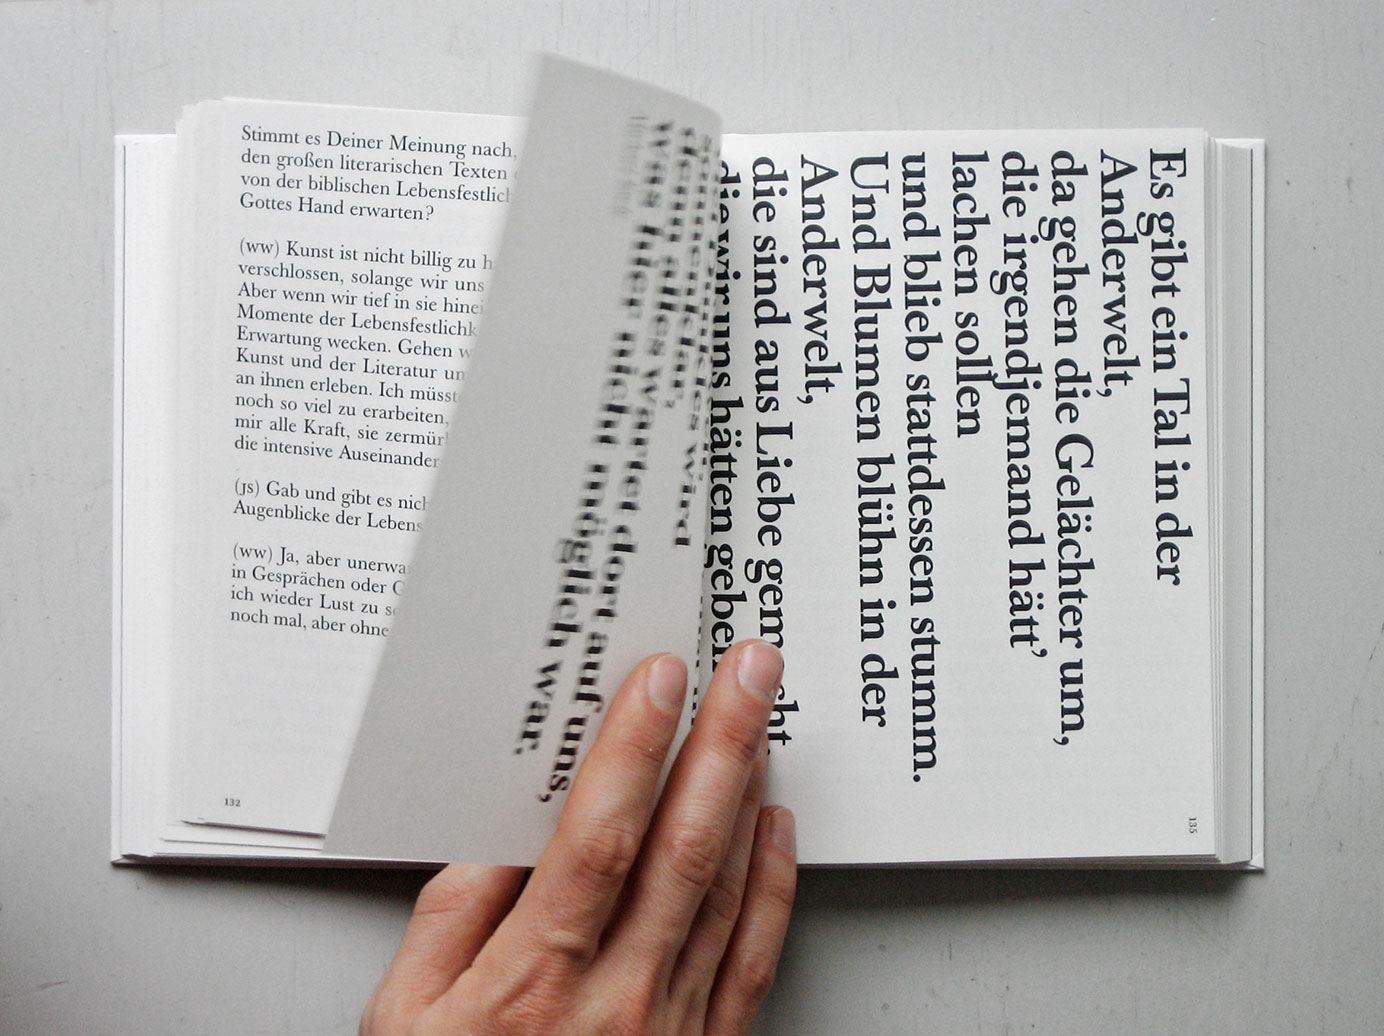 Stimmt es Deiner Meinung nach,
den großen literarischen Texten
von der biblischen Lebensfestlich
Gottes Hand erwarten?
(ww) Kunst ist nicht billig zu h
verschlossen, solange wir uns
Aber wenn wir tief in sie hinei
Momente der Lebensfestlichk
Erwartung wecken. Gehen w
Kunst und der Literatur un
an ihnen erleben. Ich müsst
noch so viel zu erarbeiten,
mir alle Kraft, sie zermür
die intensive Auseinander
(js) Gab und gibt es nich
Augenblicke der Lebens
(ww) Ja, aber unerwa
in Gesprächen oder G
ich wieder Lust zu s
noch mal, aber ohne
132
wird
denn alles,
was hier nicht möglich war.
wartet dort auf uns,
Es gibt ein Tal in der
Anderwelt,
da gehen die Gelächter um,
die irgendjemand hätt’
lachen sollen
und blieb stattdessen stumm.
Und Blumen blühn in der
Anderwelt,
die sind aus Liebe gemacht,
die wir uns hätten geben
135